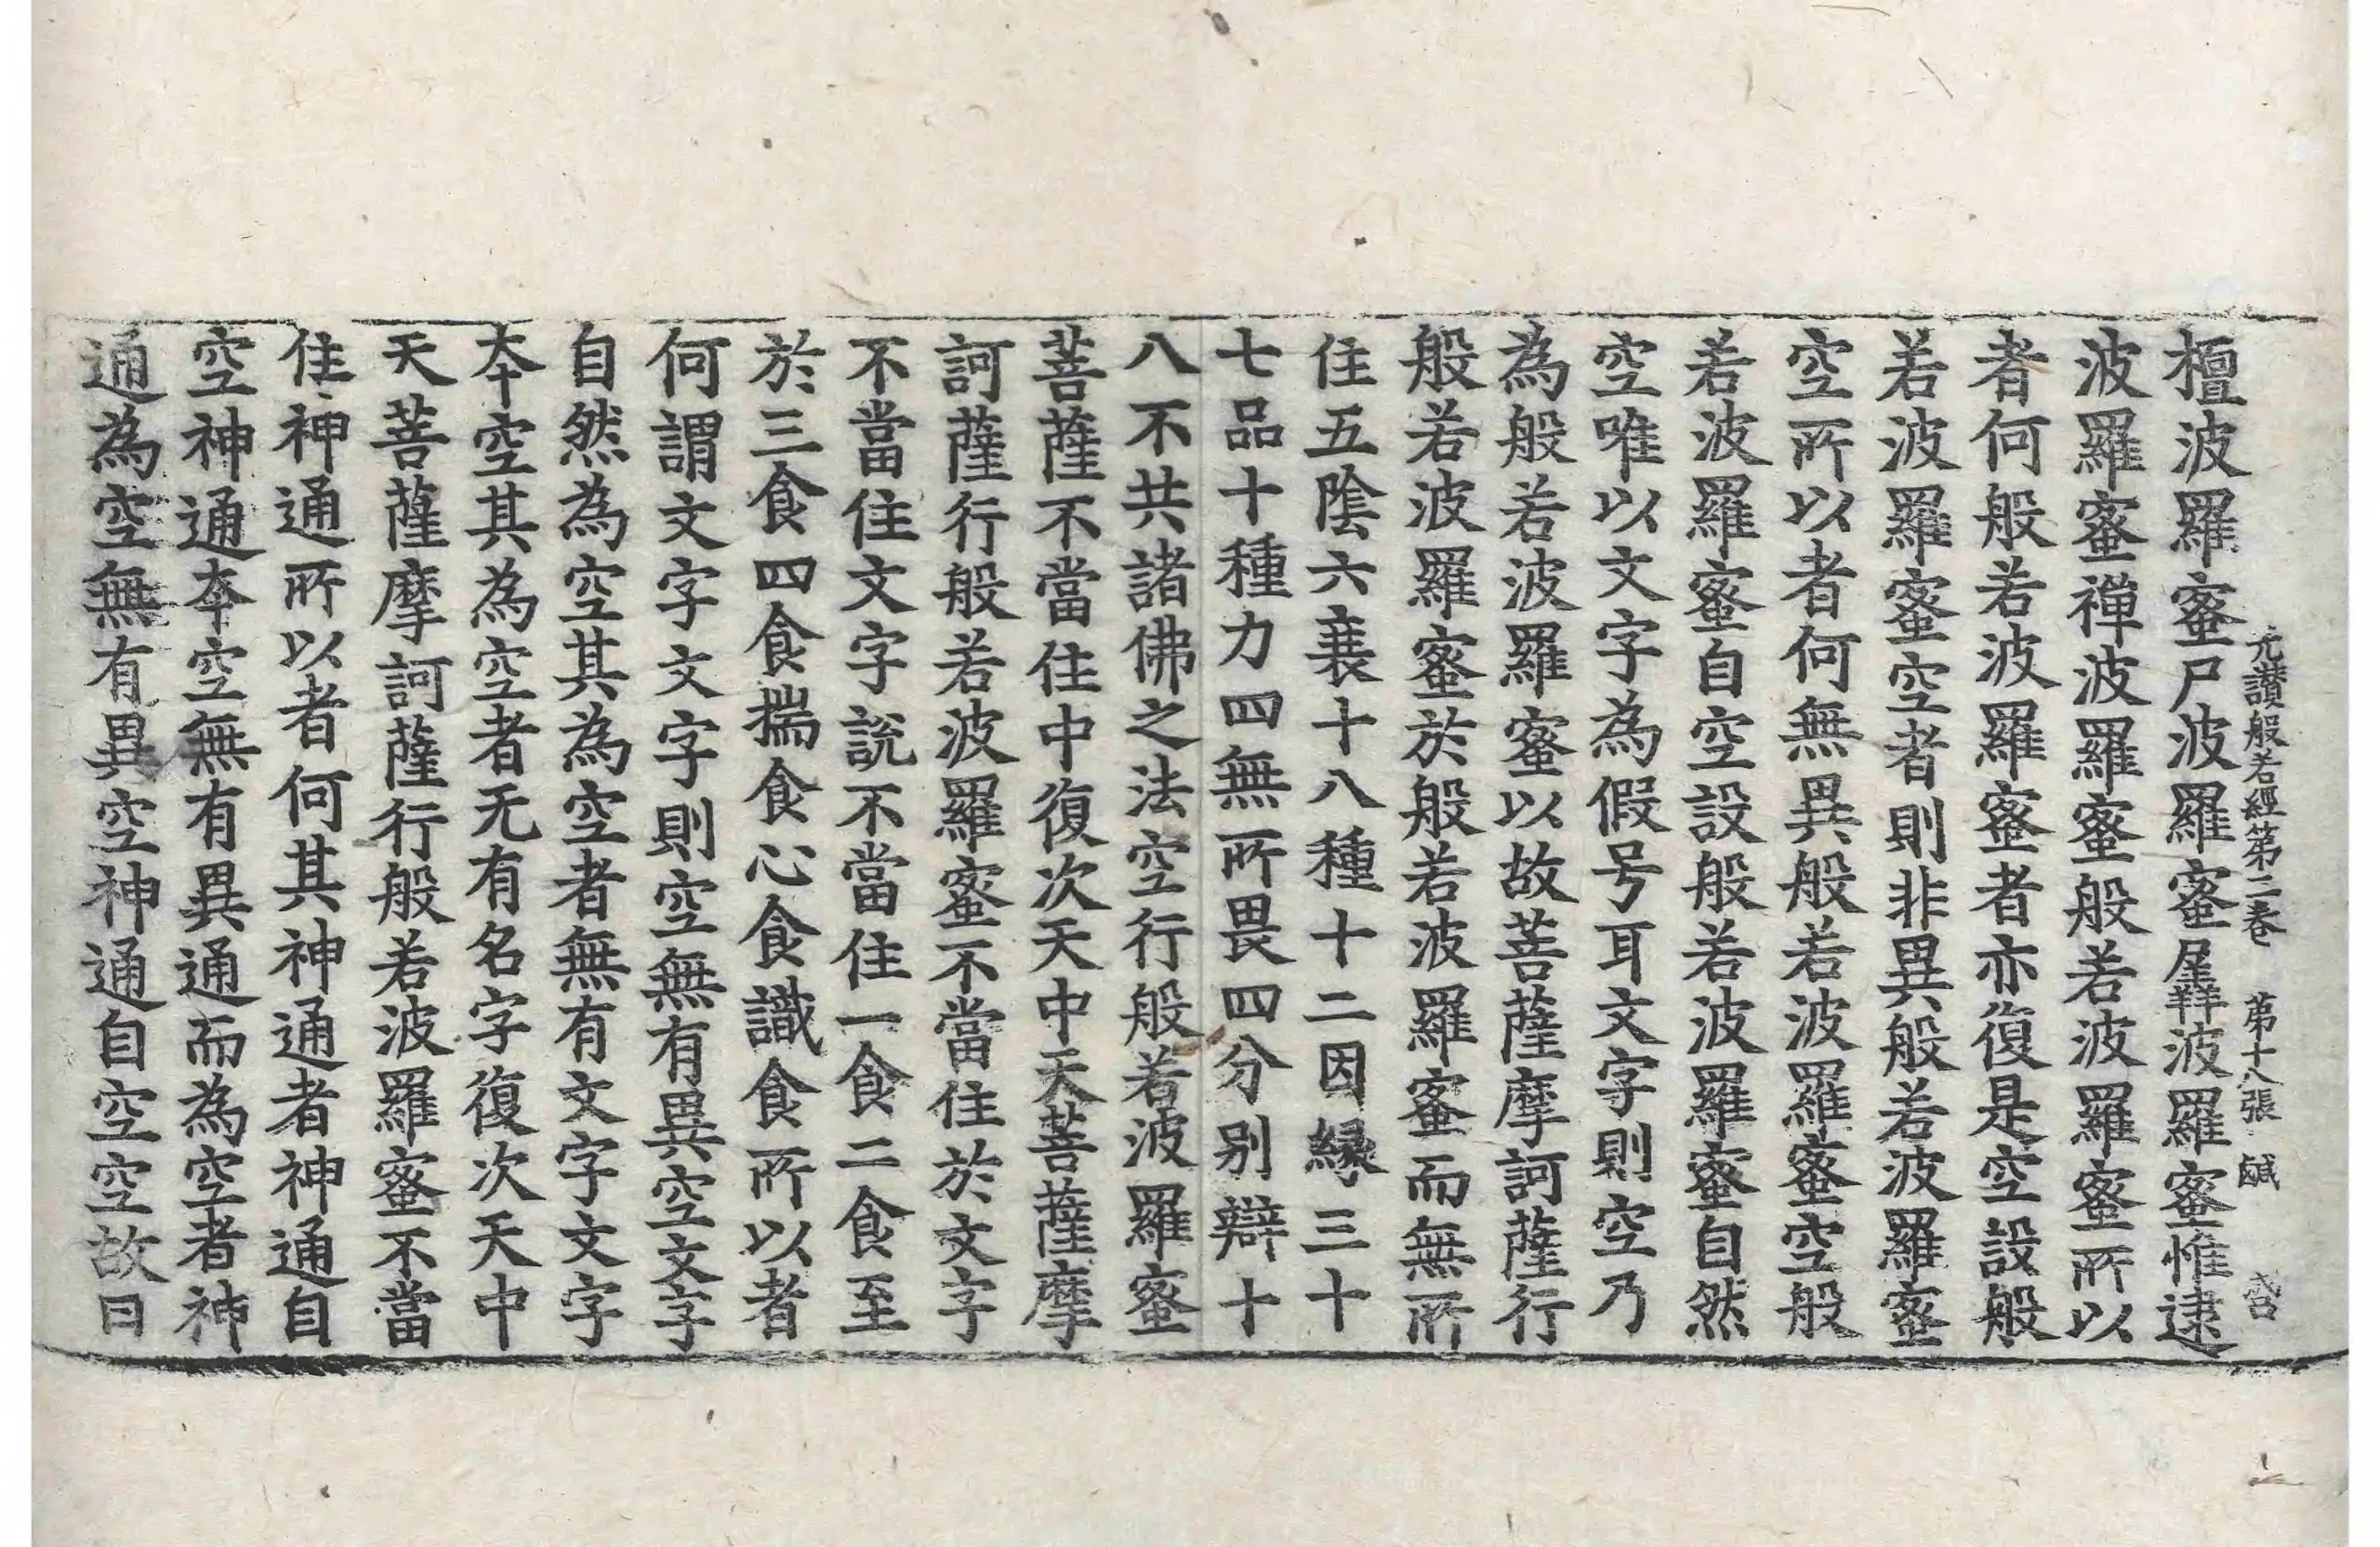 光讃般若經第三卷 第十八張 鹹
檀波羅蜜尸波羅蜜羼波羅蜜惟逮
波羅蜜禪波羅蜜般若波羅蜜所以
者何般若波羅蜜者亦復是空設般
若波羅蜜空者則非異般若波羅蜜
空所以者何無異般若波羅蜜空般
若波羅蜜自空設般若波羅蜜自然
空唯以文字為假号耳文字則空乃
為般若波羅蜜以故菩薩摩訶薩行
般若波羅蜜於般若波羅蜜而無所
住五陰六衰十八種十二因緣三十
七品十種力四無所畏四分別辯十
八不共諸佛之法空行般若波羅蜜
菩薩不當住中復次天中天菩薩摩
訶薩行般若波羅蜜不當住於文字
不當住文字說不當住一食二食至
於三食四食揣食心食識食所以者
何謂文字文字則空無有異空文字
自然為空其為空者無有文字文字
本空其為空者无有名字復次天中
天菩薩摩訶薩行般若波羅蜜不當
住神通所以者何其神通者神通自
空神通本空無有異通而為空者神
通為空無有異空神通自空空故曰